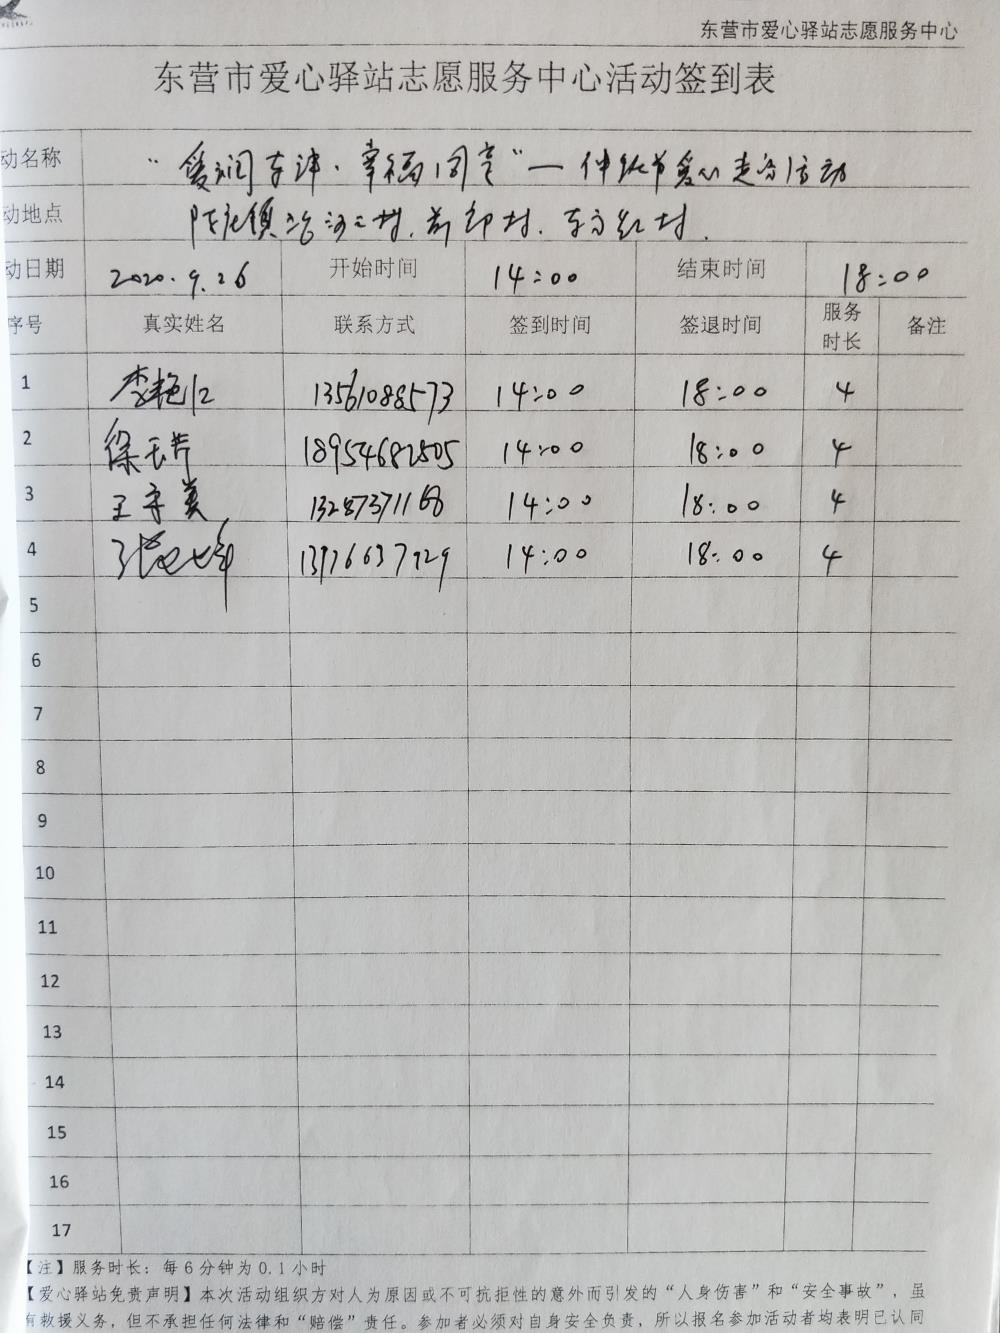 东营市爱心驿站志愿服务中心
东营市爱心驿站志愿服务中心活动签到表
动名称 “爱润东津·幸福同享”一仲秋节爱心走访活动
动地点 陈庄镇 村、前郭村、东方红村、
动日期 2020.9.26 开始时间 14:00 结束时间 18:00
序号 真实姓名 联系方式 签到时间 签退时间 服务时长 备注
1 李艳红 13561088573 14:00 18:00 4
2 徐玉芹 18954682505 14:00 18:00 4
3 王守美 13287371168 14:00 18:00 4
4 张 13976637929 14:00 18:00 4
5
6
7
8
9
10
11
12
13
14
15
16
17
【注】服务时长：每6分钟为0.1小时
【爱心驿站免责声明】本次活动组织方对人为原因或不可抗拒性的意外而引发的“人身伤害”和“安全事故”，虽
有救援义务，但不承担任何法律和“赔偿”责任。参加者必须对自身安全负责，所以报名参加活动者均表明已认同